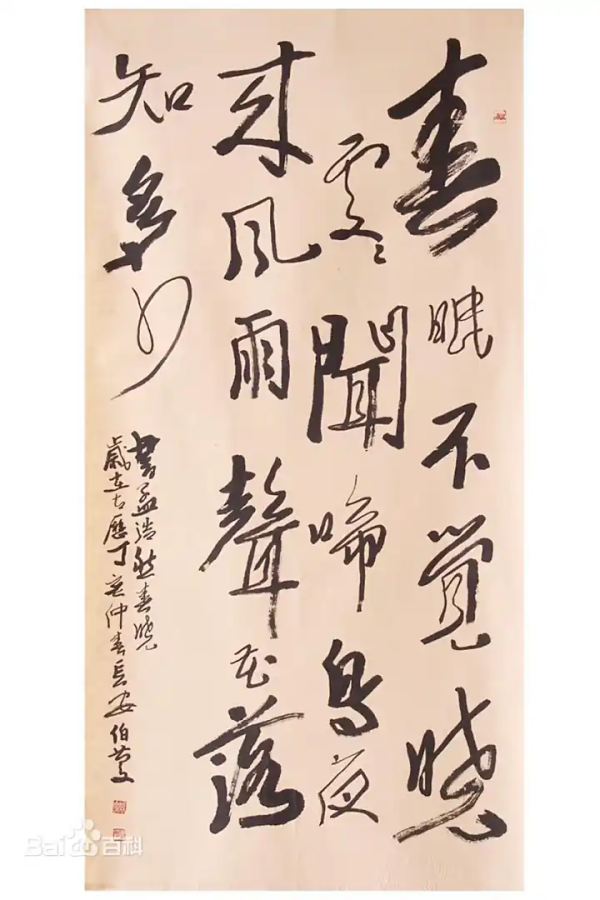 春眠不覺曉
處〻聞啼鳥夜
来風雨聲花落
知多少
書孟浩然春曉
歲在古歷丁亥仲春長安伯
Bai百科